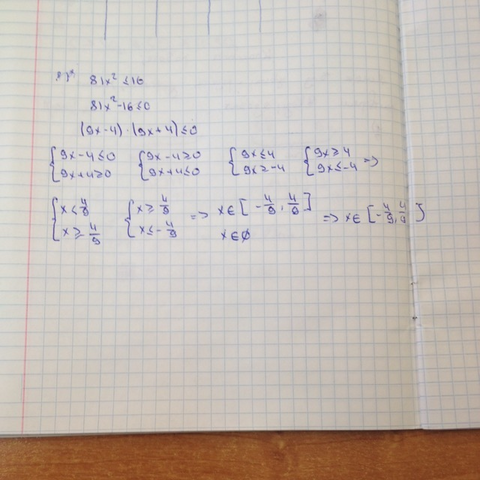 81x² ≤ 16
81x² - 16 ≤ 0
(9x - 4) · (9x + 4) ≤ 0
{9x - 4 ≤ 0 {9x - 4 ≥ 0 {9x ≤ 4 {9x ≥ 4
{9x + 4 ≥ 0 {9x + 4 ≤ 0 {9x ≥ -4 {9x ≤ -4 =>
{x ≤ 4/9 {x ≥ 4/9 => x ∈ [-4/9, 4/9] => x ∈ [-4/9, 4/9]
{x ≥ -4/9 {x ≤ -4/9 x ∈ ∅